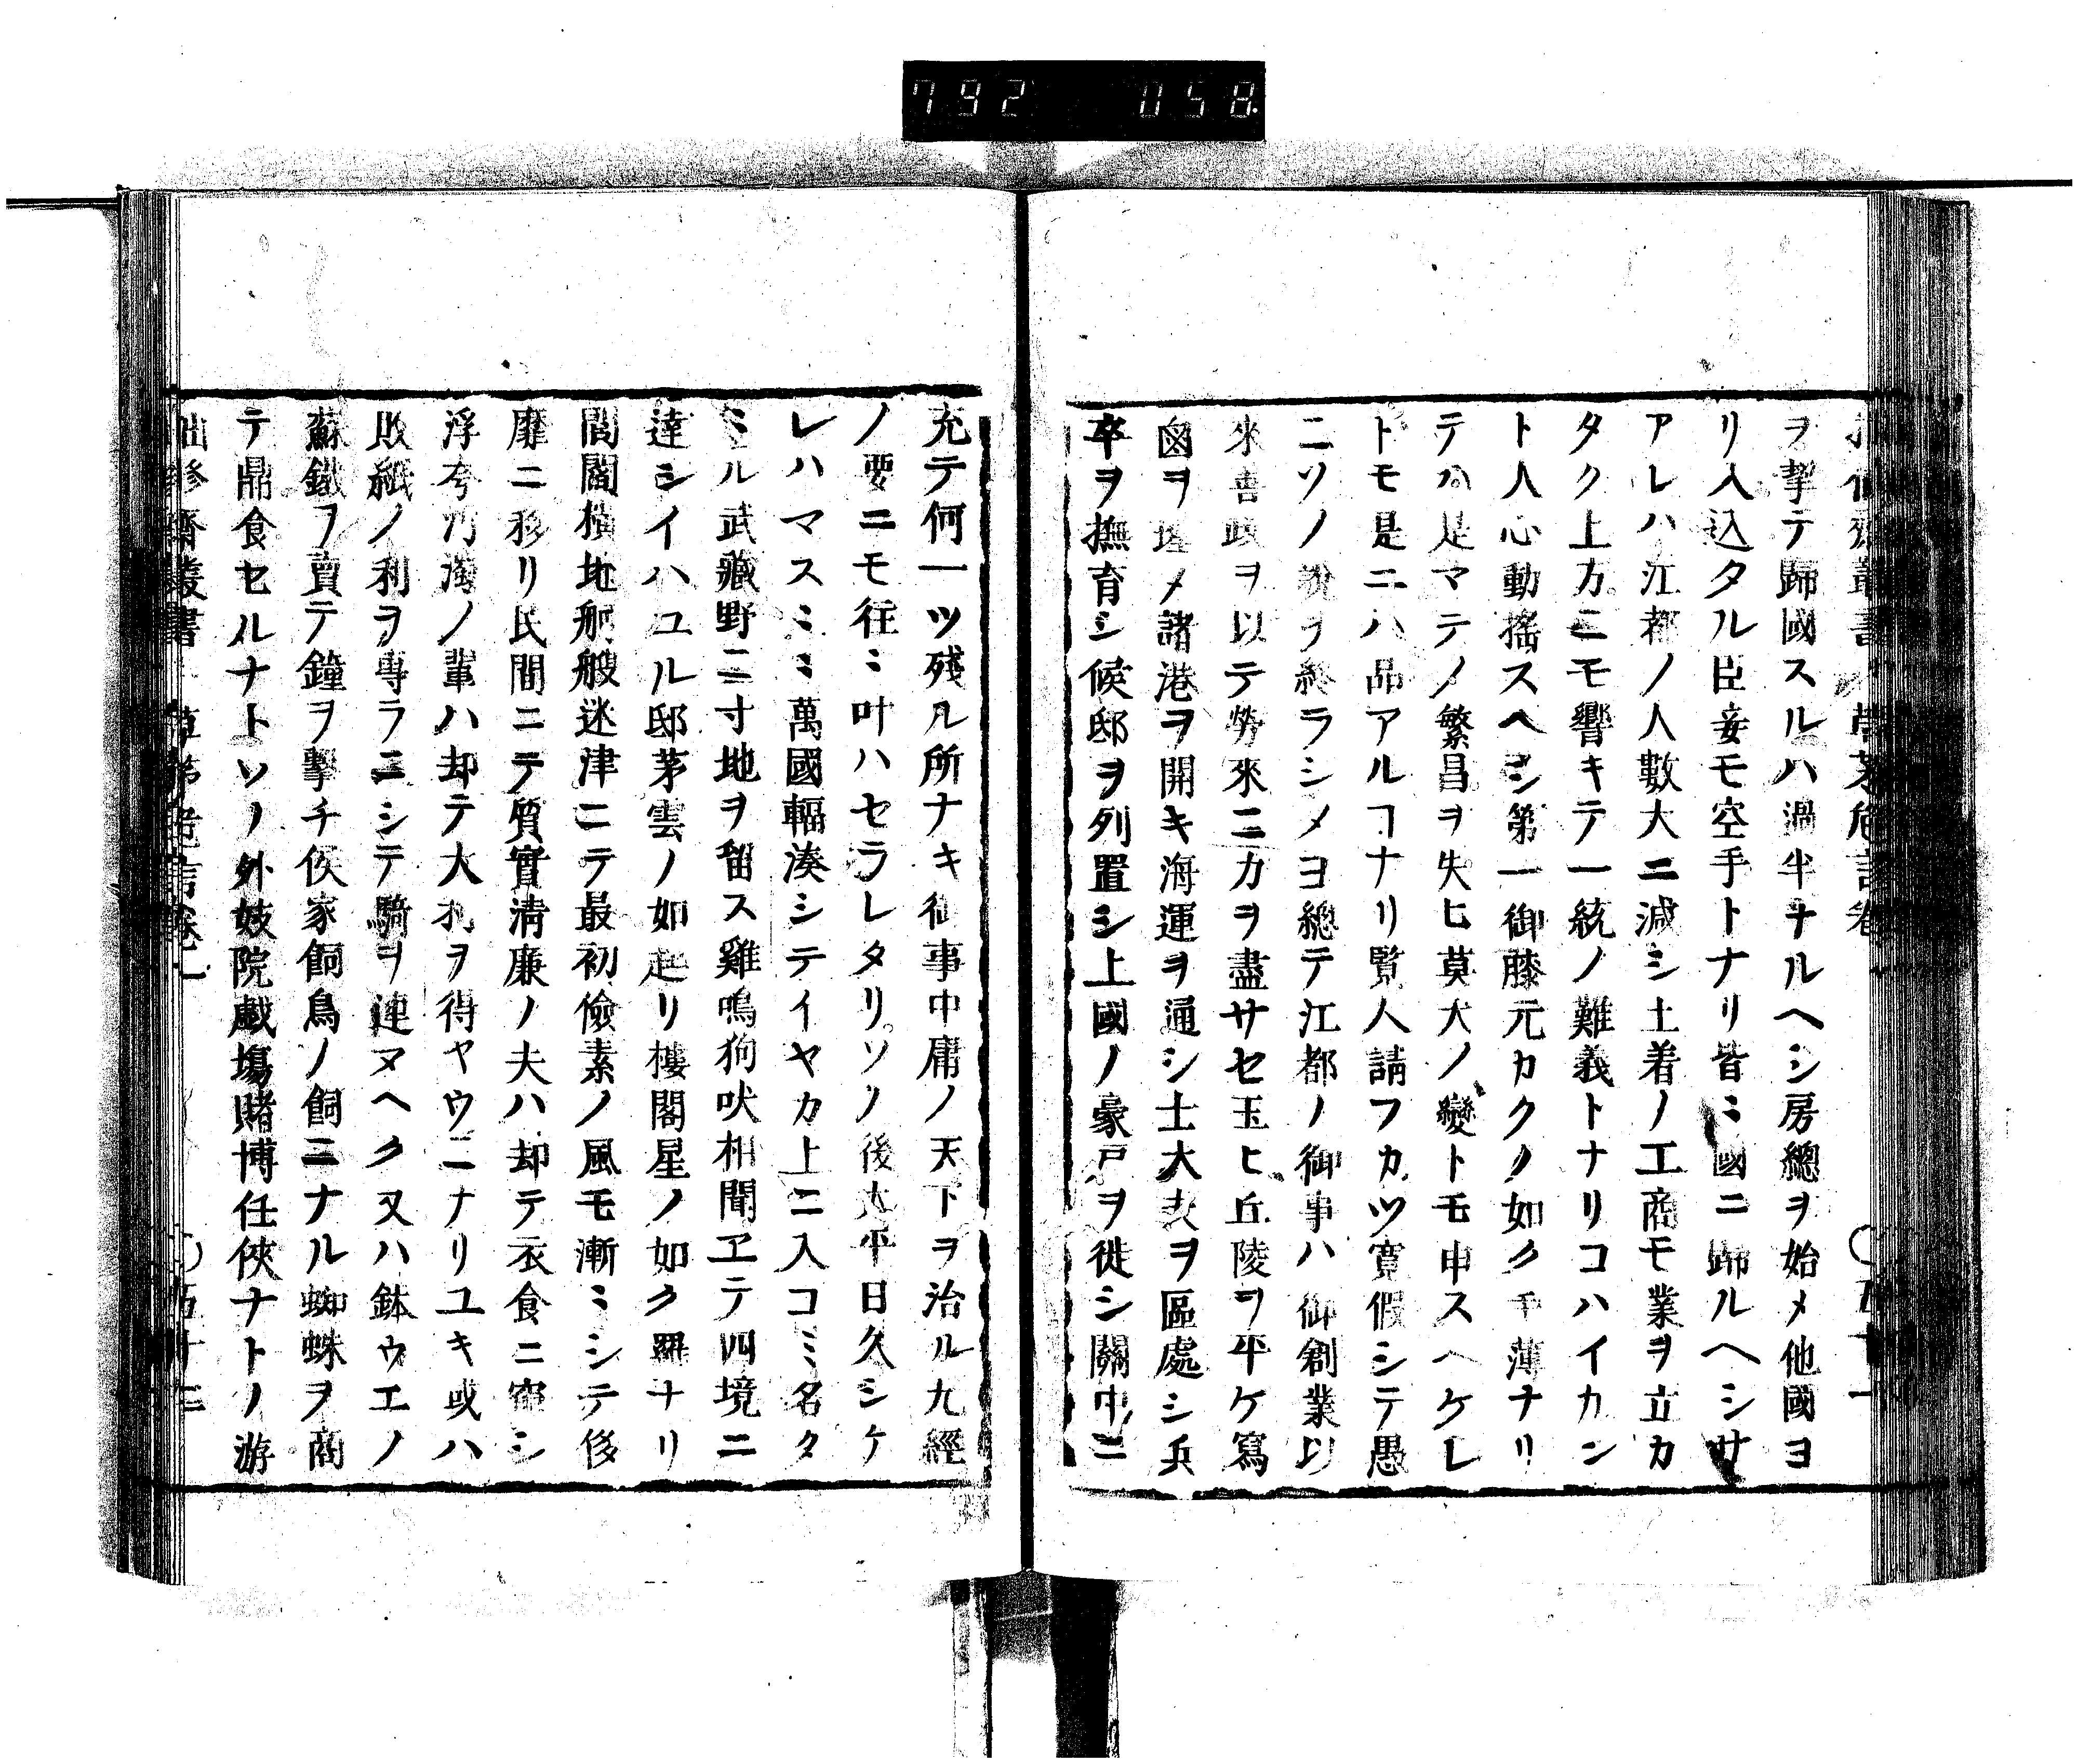 792 058
ヲ挈テ歸國スルハ過半ナルヘシ房總ヲ始メ他國ヨ
リ入込タル臣妾モ空手トナリ皆ミ國ニ歸ルヘシサ
アレハ江都ノ人數大ニ減シ土着ノ工商モ業ヲ立カ
タク上方ニモ響キテ一統ノ難義トナリコハイカン
ト人心動搖スヘシ第一御膝元カクノ如ク手薄ナリ
テハ是マテノ繁昌ヲ失ヒ莫大ノ變トモ申スヘケレ
トモ是ニハ品アルコナリ賢人請フカツ寛假シテ愚
ニソノ説ヲ終ラシメヨ總テ江都ノ御事ハ御創業以
來善政ヲ以テ勞來ニカヲ盡サセ玉ヒ丘陵ヲ平ケ寫
鹵ヲ埋メ諸港ヲ開キ海運ヲ通シ士大夫ヲ區處シ兵
卒ヲ撫育シ候邸ヲ列置シ上國ノ豪戸ヲ徙シ關中ニ
充テ何一ツ殘ル所ナキ御事中庸ノ天下ヲ治ル九經
ノ要ニモ往ミ叶ハセラレタリソノ後太平日久シケ
レハマスミミ萬國輻湊シテイヤカ上ニ入コミ名タ
ミル武藏野ニ寸地ヲ留ス雞鳴狗吠相聞ヱテ四境ニ
達シイハユル邸茅雲ノ如起リ樓閣星ノ如ク羅ナリ
閭閻撲地舸艘迷津ニテ最初儉素ノ風モ漸ミシテ侈
靡ニ移リ民間ニテ質實淸廉ノ夫ハ却テ衣食ニ窘シ
浮夸ノ輩ハ却テ大利ヲ得ヤウニナリユキ或ハ
敗紙ノ利ヲ専ラニシテ騎ヲ連ヌヘク又ハ鉢ウエノ
蘇鐵ヲ賣テ鐘ヲ擊チ侯家飼鳥ノ飼ニナル蜘蛛ヲ商
テ鼎食セルナトソノ外妓院戯塲賭博任俠ナトノ游